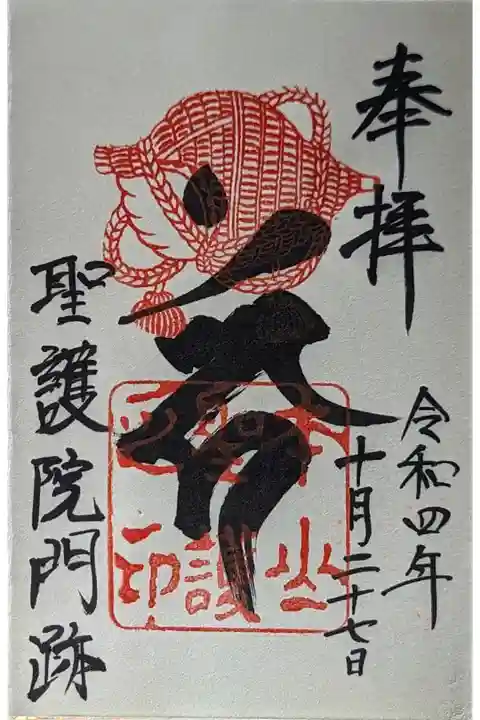 奉拝
令和四年
十月二十七日
本山
聖護
聖護院門跡